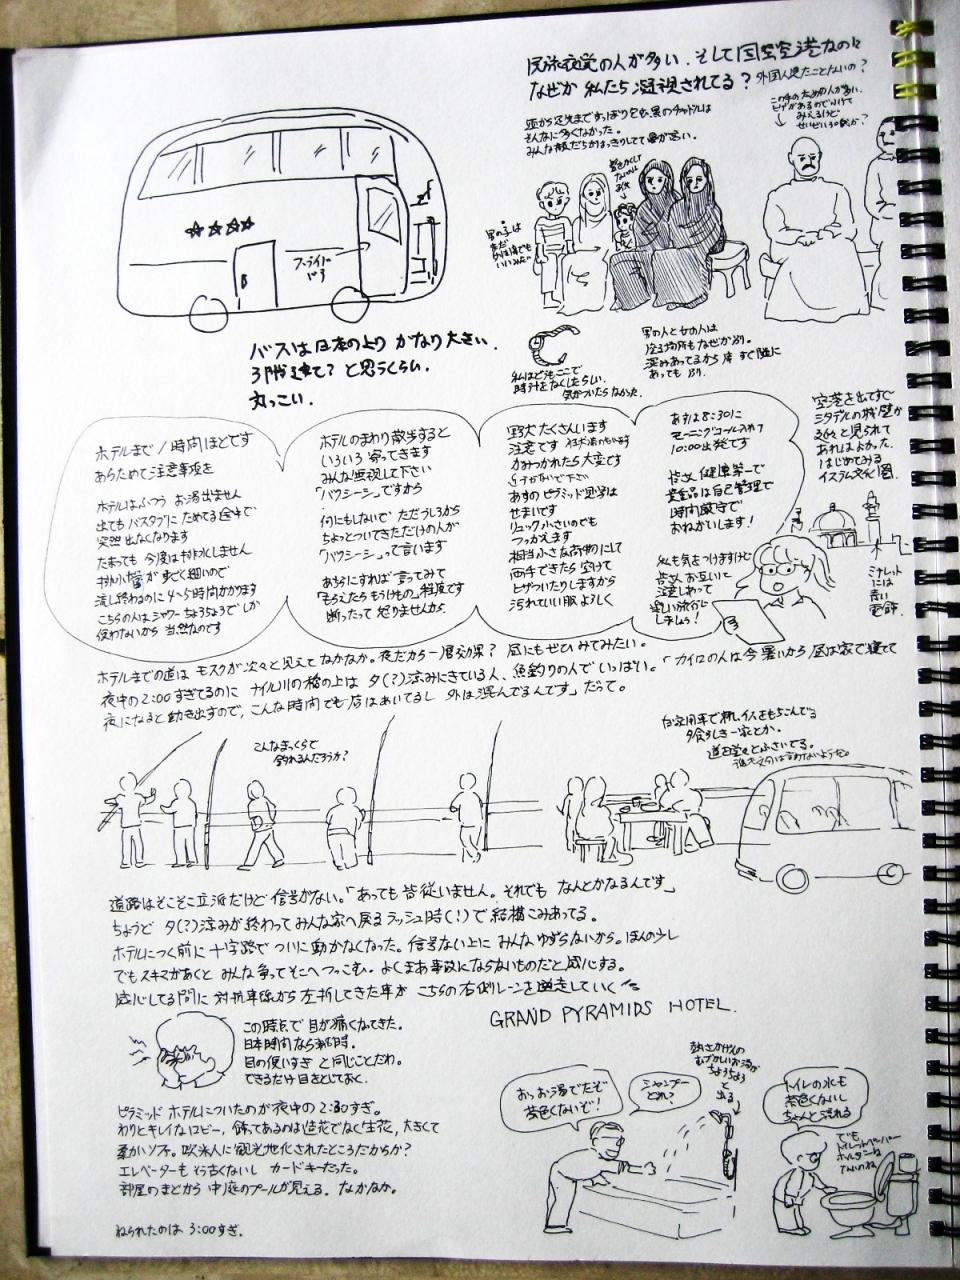 民族衣装の人が多い。そして国際空港なのに
なぜか 私たち凝視されてる？外国人見たことないの？
この手の太めの人が多い。
ヒゲがあるのでふけて
みえるけど
せいぜい30歳か？
頭から足先まですっぽり包む黒のチャドルは
そんなに多くなかった。
みんな顔だちがはっきりしてて鼻が高い。
男の子は
まだ
バスは日本のより かなり大きい。
3階建て？と思うくらい。
丸っこい。
私はどうもここで
時計をなくしたらしい。
気がついたらなかった。
男の人と女の人は
座る場所もなぜかべつ。
混みあってるから席すぐ隣に
あっても べつ。
空港を出てすぐ
シタデルの城壁が
次々と見られて
あれはよかった。
はじめてみる
イスラム文化圏。
ホテルまで1時間ほどです
あらためて注意事項を
ホテルはふつう お湯出ません
出てもバスタブにためてる途中で
突然出なくなります
たまっても 今度は排水しません
排水管がすごく細いので
流し終わるのに4〜5時間かかります
こちらの人はシャワーちょろちょろでしか
使わないから 当然なのです
ホテルのまわり散歩すると
いろいろ寄ってきます
みんな無視して下さい
「バクシーシ」ですから
何にもしないで ただうしろから
ちょっとついてきただけの人が
「バクシーシ」って言います
あちらにすれば 言ってみて
「もらえたらもうけもの」程度です
断ったって 怒りませんから
野犬たくさんいます
注意です
かみつかれたら大変です
あすのピラミッド見学は
せまいです
リュック小さいのでも
つっかえます
相当小さな荷物にして
両手できたら空けて
ヒザついたりしますから
汚れていい服よろしく
あすは8:30に
モーニングコール入れて
10:00出発です
皆さん健康第一で
貴重品は自己管理で
時間厳守で
おねがいします！
私も気をつけますけど
皆さんお互いに
注意しあって
楽しい旅行に
しましょう！
ミナレット
には
青い
電飾
ホテルまでの道は モスクが次々と見えて なかなか。夜だから一層効果？ 昼にもぜひみてみたい。
夜中の2:00すぎてるのに ナイル川の橋の上は 夕(?)涼みにきている人、魚釣りの人でいっぱい。「カイロの人は今暑いから昼は家で寝てて
夜になると動き出すので、こんな時間でも店はあいてるし 外は混んでるんです」だって。
こんなまっくらで
釣れるんだろうか？
自家用車で机、イスをもちこんでる
夕食らしき一家とか。
道路堂々とふさいでる。
道路はそこそこ立派だけど 信号がない。「あっても皆従いません。それでも なんとかなるんです」
ちょうど 夕(?)涼みが終わってみんな家へ戻るラッシュ時(！)で結構こみあってる。
ホテルにつく前に 十字路でついに動かなくなった。信号ない上にみんなゆずらないから。ほんの少し
でもスキマがあくと みんな争ってそこへつっこむ。よくまあ事故にならないものだと感心する。
感心してる間に 対抗車線から左折してきた車が こちらの右側レーンを逆走していく
この時点で 目が痛くなってきた。
日本時間なら朝8時。
目の使いすぎ と同じことだわ。
できるだけ目をとじておく。
GRAND PYRAMIDS HOTEL.
ピラミッド ホテルについたのが夜中の2:30すぎ。
わりとキレイなロビー。飾ってあるのは造花でなく生花、大きくて
柔かいソファ。欧米人に観光地化されたところだからか？
エレベーターもそう古くないし カードキーだった。
部屋のまどから 中庭のプールが見える。なかなか。
ねられたのは 3:00すぎ。
おっお湯でたぞ
茶色くないぞ！
シャンプー
どれ？
熱さかげんの
むずかしいお湯が
ちょろちょろ
と
出る
トイレの水も
茶色くないし
ちゃんと流れる
でも
トイレットペーパー
ホルダーは
ないのね